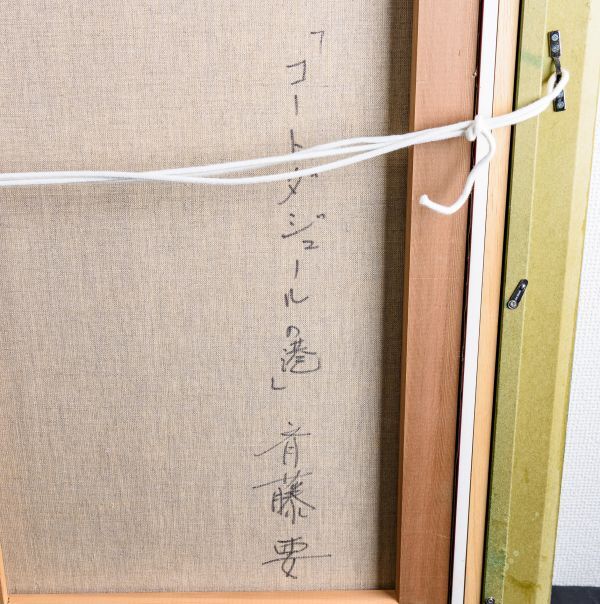 「コートダジュールの港」 斉藤要